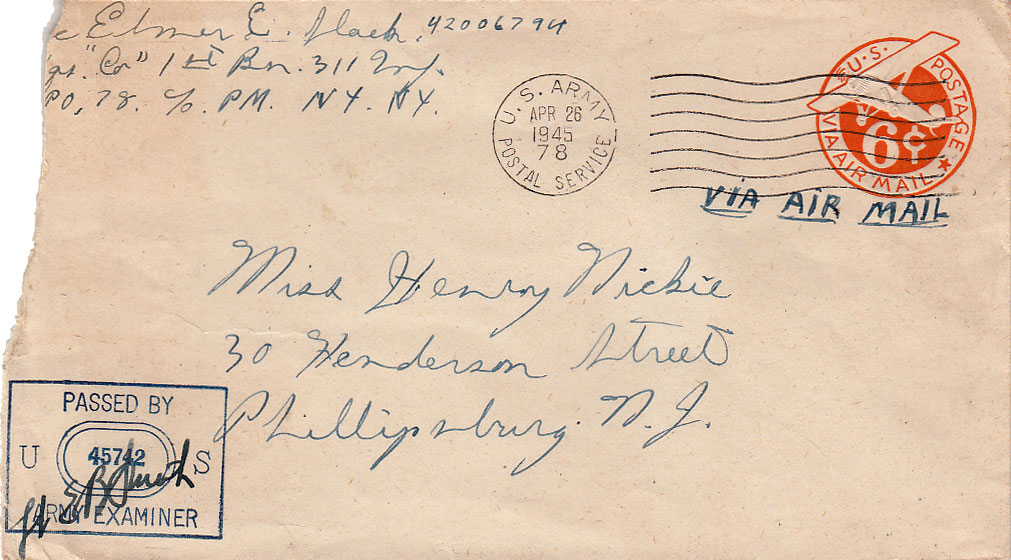 Elmer E. Mack 42006794
"Co" 1st Bn. 311 Inf.
PO, 78. c/o. PM. NY. NY.
U.S. ARMY
APR 26
1945
78
POSTAL SERVICE
U.S. POSTAGE
6¢
VIA AIR MAIL
VIA AIR MAIL
Miss Henry Nickie
30 Henderson Street
Phillipsburg. N.J.
PASSED BY
U 45742 S
ARMY EXAMINER
Lt E B Smith